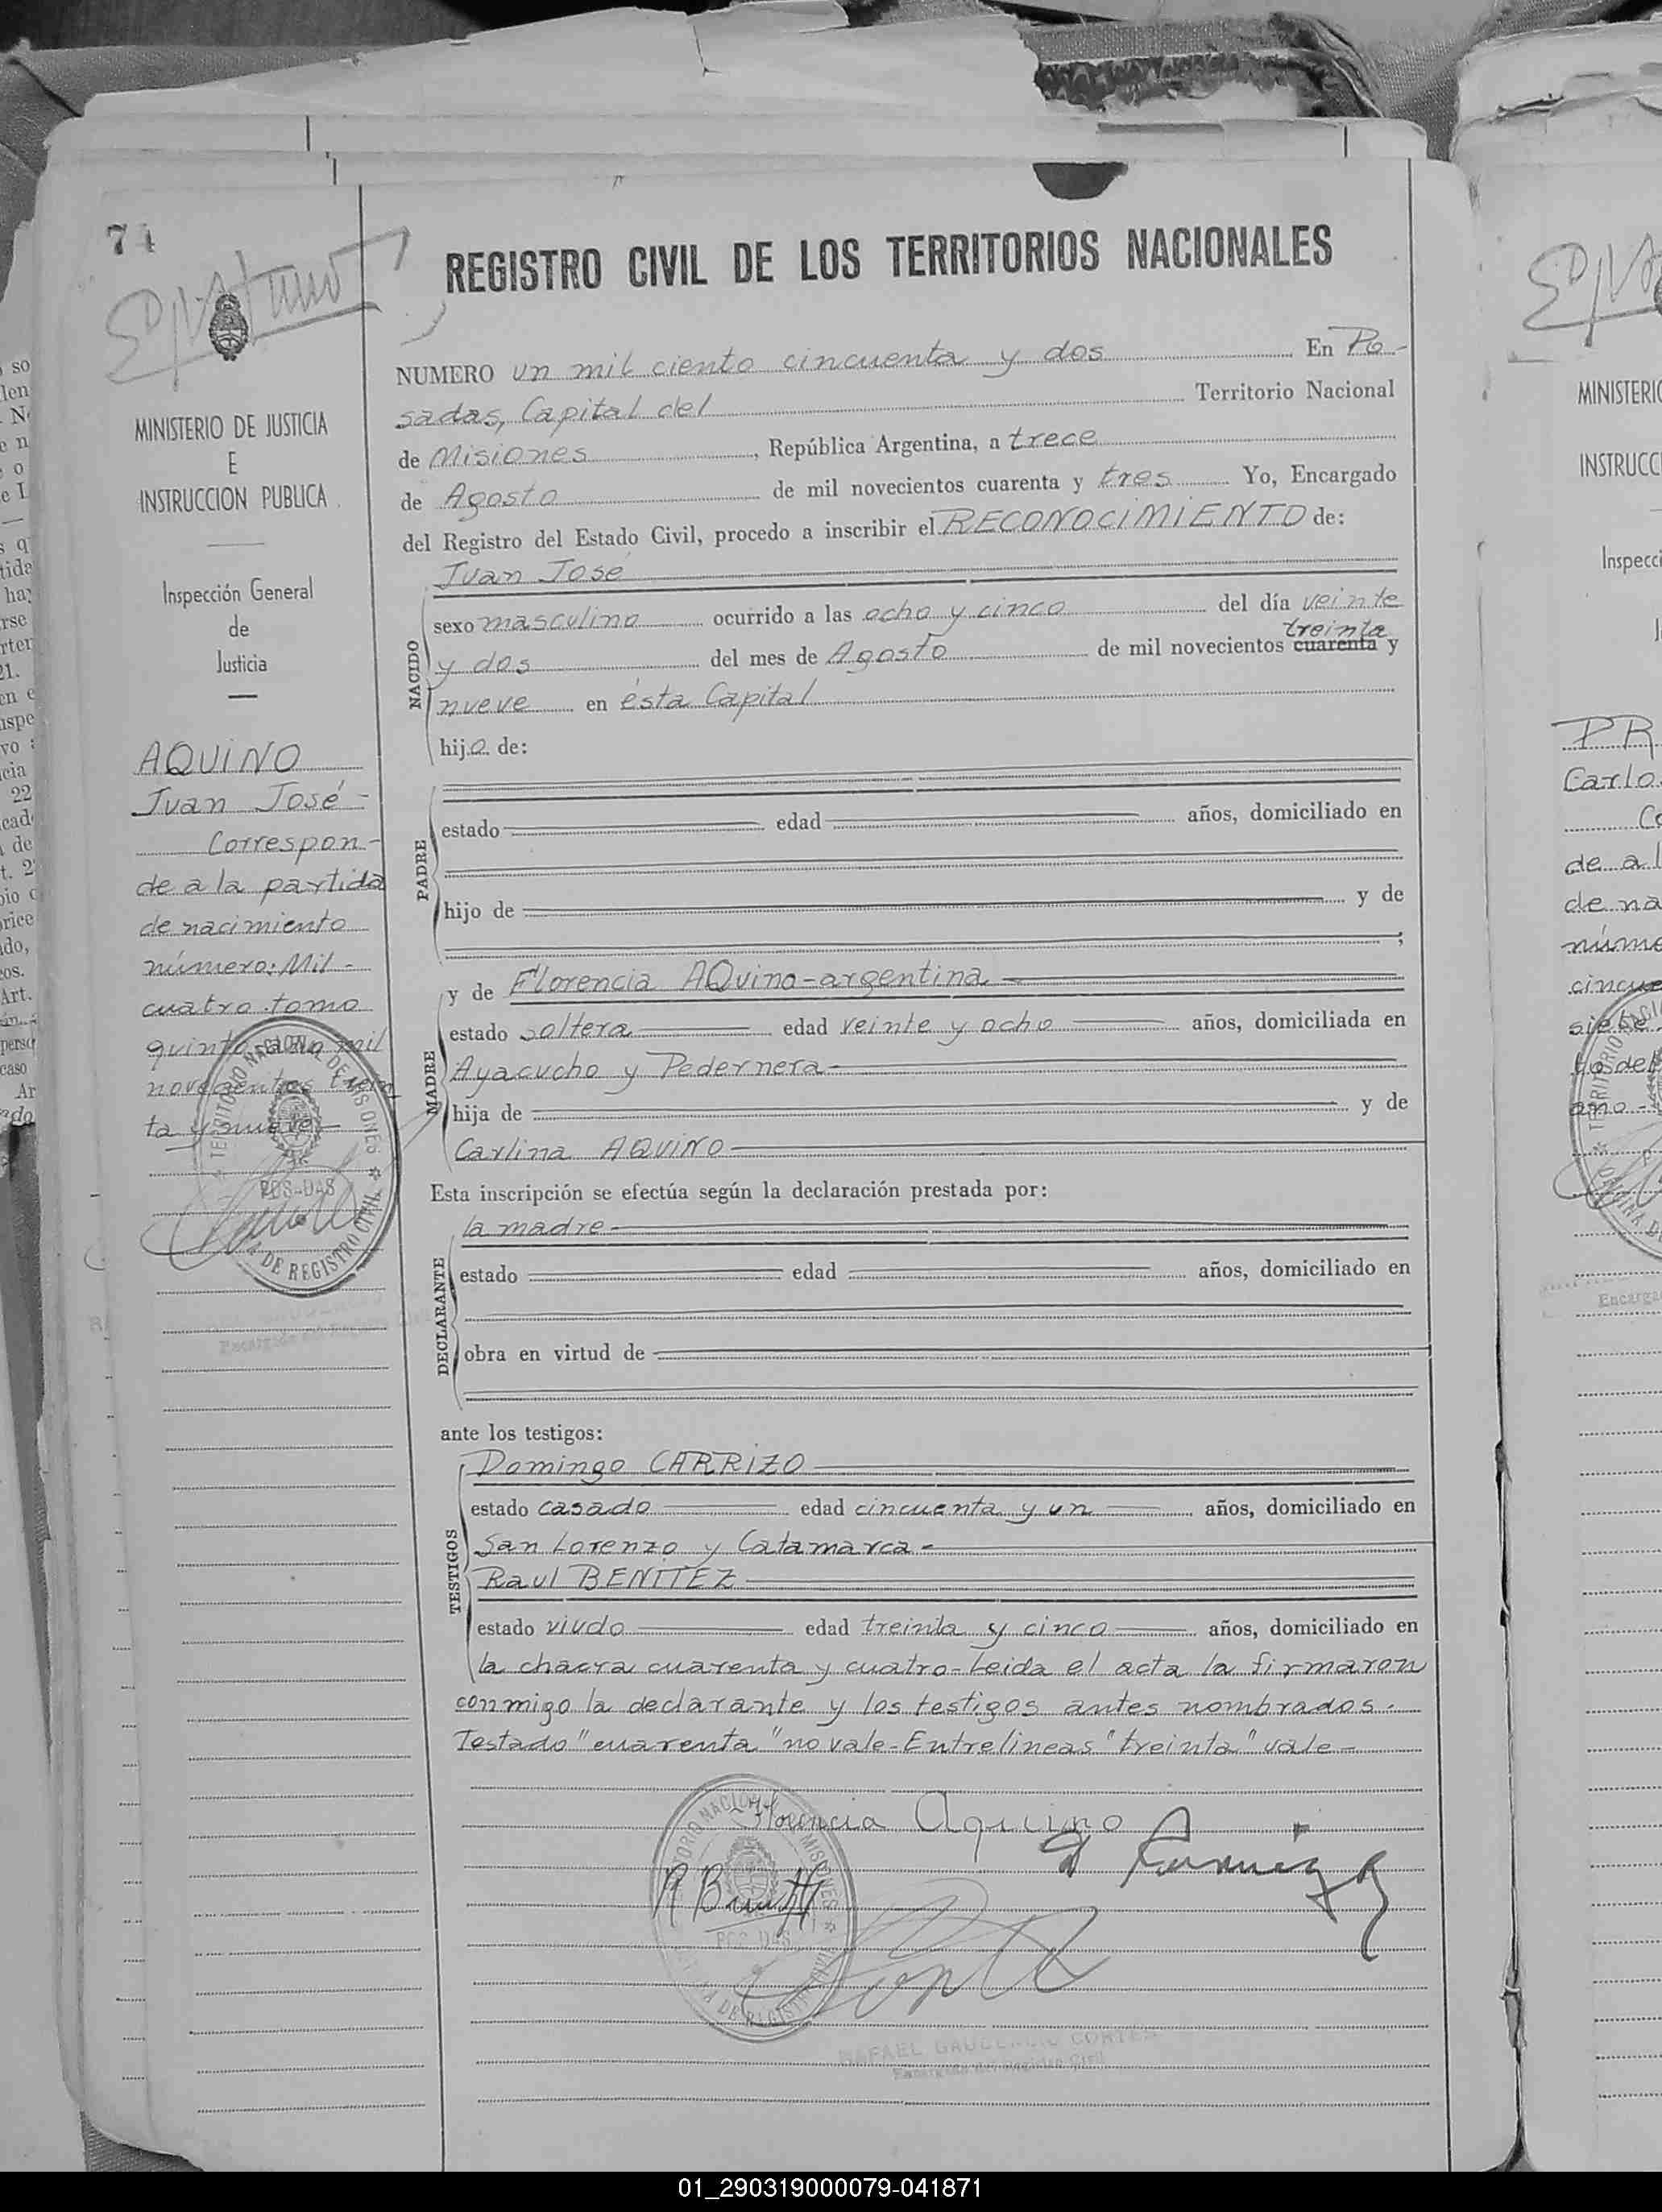 74
REGISTRO CIVIL DE LOS TERRITORIOS NACIONALES
MINISTERIO DE JUSTICIA
E
INSTRUCCION PUBLICA
Inspección General
de
Justicia
AQUINO
Juan José -
Correspon-
de a la partida
de nacimiento
número: Mil -
cuatro tomo
quinto año mil
novecientos trein
ta y nueve
NUMERO un mil ciento cincuenta y dos En Po-
sadas, Capital del Territorio Nacional
de Misiones, República Argentina, a trece
de Agosto de mil novecientos cuarenta y tres Yo, Encargado
del Registro del Estado Civil, procedo a inscribir el RECONOCIMIENTO de:
Juan José
NACIDO
sexo masculino ocurrido a las ocho y cinco del día veinte
treinta
y dos del mes de Agosto de mil novecientos cuarenta y
nueve en ésta Capital
hijo de:
PADRE
estado edad años, domiciliado en
hijo de y de
;
MADRE
y de Florencia AQuino-argentina
estado soltera edad veinte y ocho años, domiciliada en
Ayacucho y Pedernera-
hija de y de
Carlina AQUINO
Esta inscripción se efectúa según la declaración prestada por:
la madre
DECLARANTE
estado edad años, domiciliado en
obra en virtud de
ante los testigos:
TESTIGOS
Domingo CARRIZO
estado casado edad cincuenta y un años, domiciliado en
San Lorenzo y Catamarca -
Raul BENITEZ
estado viudo edad treinta y cinco años, domiciliado en
la chacra cuarenta y cuatro-Leida el acta la firmaron
conmigo la declarante y los testigos antes nombrados.
Testado "cuarenta" no vale-Entrelineas "treinta" vale-
Florencia Aquino
TERRITORIO NACIONAL DE MISIONES
POSADAS
OFICINA DE REGISTRO CIVIL
Encargado del Registro Civil
MINISTERIO
INSTRUCC
Inspecci
PR
Carlo
Co
de a l
de na
núme
cincue
siete
01_290319000079-041871